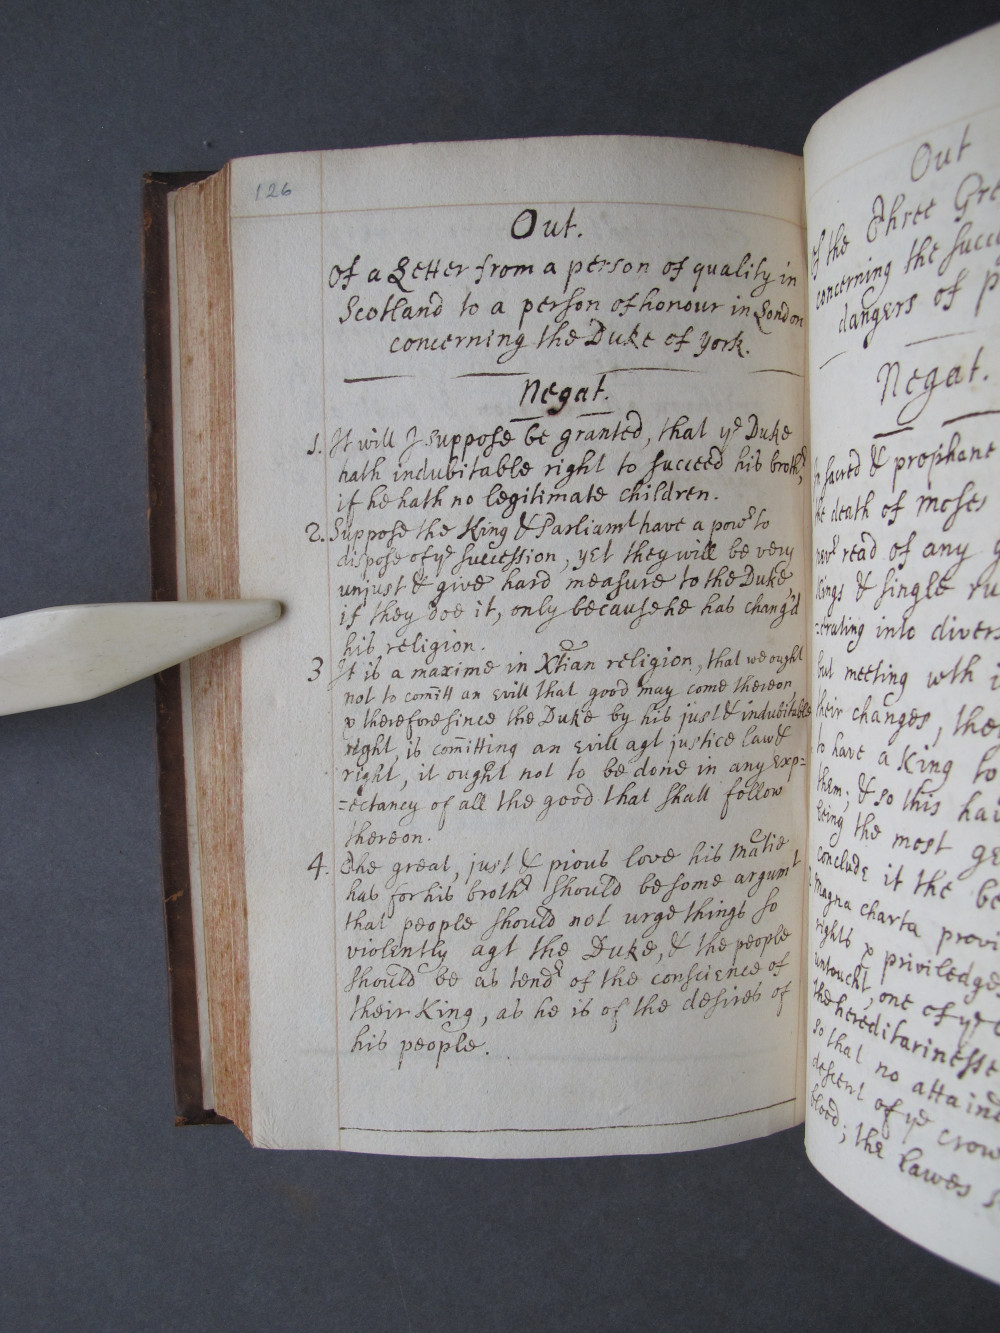 126
Out.
Of a Letter from a person of quality in
Scotland to a person of honour in London
concerning the Duke of York.
Negat.
1. It will I suppose be granted, that ye Duke
hath indubitable right to succeed his brothr,
if he hath no legitimate children.
2. Suppose the King & Parliamt have a powr to
dispose of ye succession, yet they will be very
unjust & give hard measure to the Duke,
if they doe it, only because he has chang'd
his religion.
3 It is a maxime in Xtian religion, that we ought
not to comitt an evill that good may come thereon
& therefore since the Duke by his just & indubitable
right, is comitting an evill agt justice law &
right, it ought not to be done in any exp=
=ectancy of all the good that shall follow
thereon.
4. The great, just & pious love his Matie
has for his brothr should be some argumt
that people should not urge things so
violently agt the Duke, & the people
should be as tendr of the conscience of
their King, as he is of the desires of
his people.
Out
of the Three Gre
concerning the succ
dangers of P
Negat.
In sacred & prophane
the death of Moses
nevr read of any
Kings & single ru
=erating into divers
but meeting wth i
their changes, the
to have a King to
them; & so this ha
being the most ge
conclude it the be
2 Magna charta provi
rights & priviledge
untoucht, one of ye
the hereditarinesse
so that no attaind
descent of ye crow
blood; the lawes s